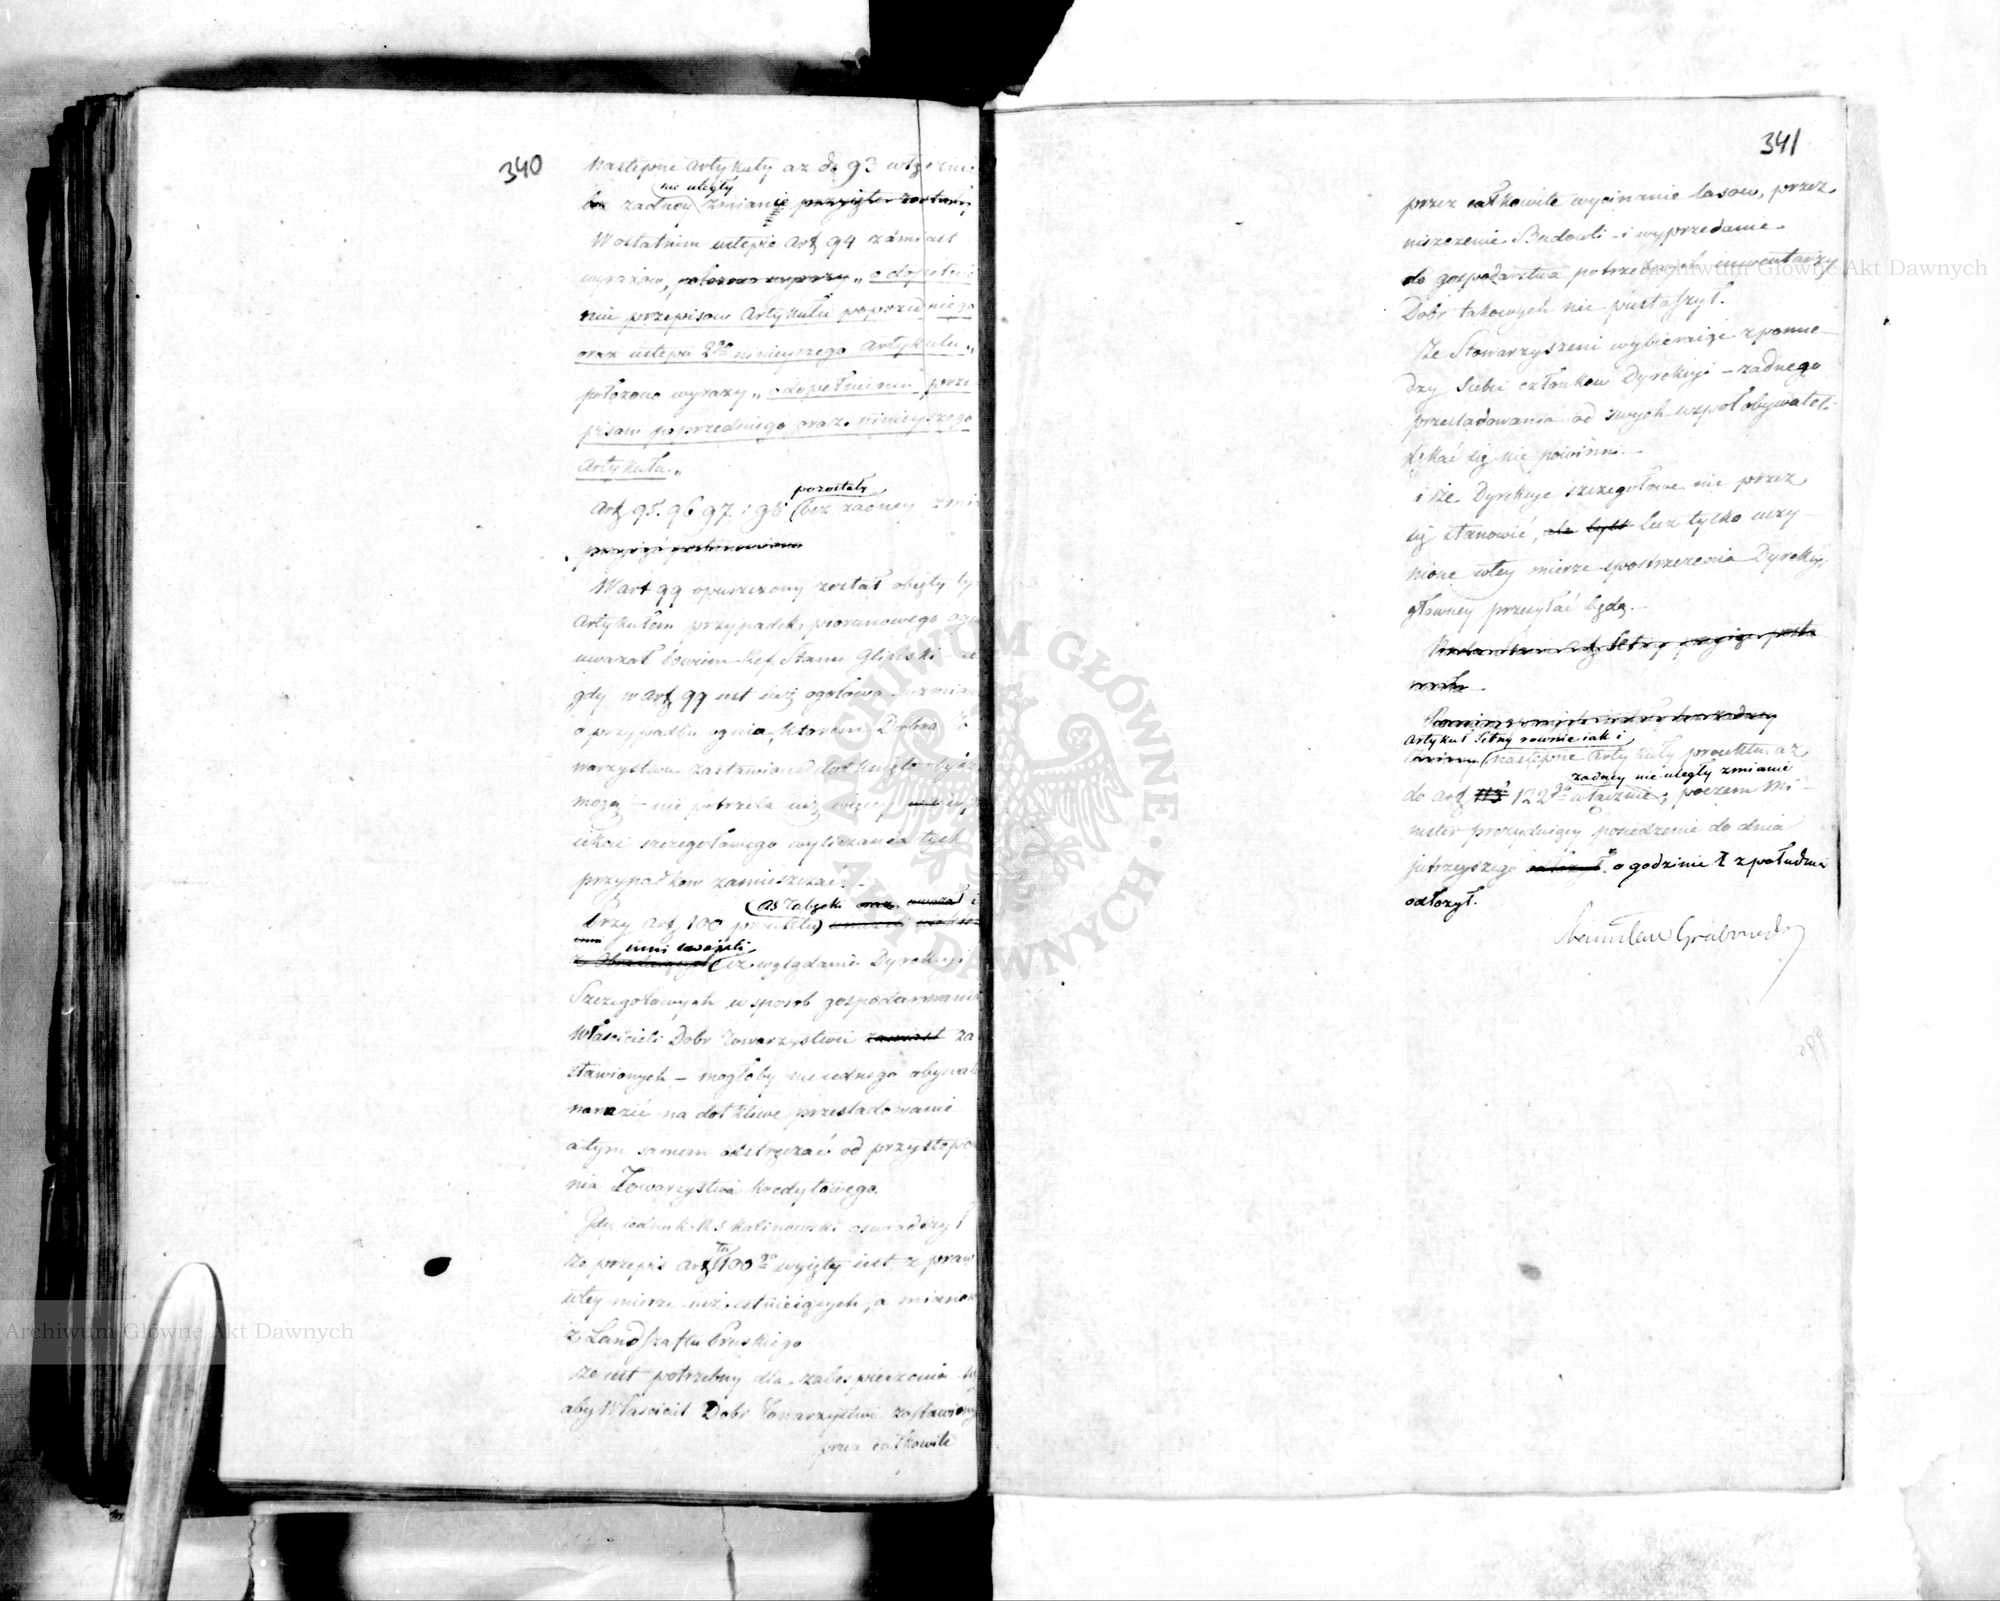 340
Następne Artykuły aż do 93 włącznie
nie uległy
bez żadnéy zmianie przyięte zostały
W ostatnim ustępie Art 94 zamiast
wyrazów, położono wyrazy „o dopełnie
niu przepisów Artykułu poprzedniego
oraz ustępu 2go ninieyszego Artykułu„
położono wyrazy „o dopełnieniu prze
pisów poprzedniego oraz ninieyszego
Artykułu„
pozostały
Art 95. 96 97. i 98 bez żadney zmia
W art 99 opuszczony został obięty ty
Artykułem przypadek piorunowego ogn
uważał bowiem Ref. Stanu Gliński że
gdy w Art 99 iest iuż ogółowa wzmian
o przypadku ognia, którym Dobra To
warzystwu zastawione dotknięte być
mogą – nie potrzeba iuż więcey
szczegółowego wyliczania tych
przypadków zamieszczać. –
(AS Zabęski oraz uważał i
Przy Art 100 projektu)
inni sądzili
iż wglądanie Dyrekcyi
Szczegółowych w sposób gospodarowania
Właścicieli Dóbr Towarzystwu zamiast za
stawionych – mogłoby nie iednego obywat
narazić na dotkliwe prześladowanie
a tym samem odstręczać od przystąpie
nia Towarzystwa Kredytowego.
Gdy iednak RS Kalinowski oświadczył
że przepis Art 100go wyięty iest z praw
w tey mierze iuż istnieiących, a mianow
z Landszaftu Pruskiego
że iest potrzebny dla zabespieczenia się
aby Właściciel Dóbr Towarzystwu zastawiony
przez całkowite
341
przez całkowite wycinanie lasów, przez
niszczenie Budowli – i wyprzedanie
do gospodarstwa potrzebnych inwentarzy
Dóbr takowych nie pustoszył.
Że Stowarzyszeni wybieraiąc z pomię
dzy siebie członków Dyrekcyi – żadnego
prześladowania od swych współobywateli
lękać się nie powinni. –
i że Dyrekcye szczegółowe nie przez
się stanowić, ale tylko lecz tylko uczy
nione w tey mierze spostrzeżenia Dyrekcyi
głowney przesyłać będą. –
Artykuł Setny równie iak i
następne Artykuły proiektu aż
żadney nie uległy zmianie
do Art 115 122go włącznie; poczem Mi
nister prezyduiący posiedzenie do dnia
jutrzeyszego odłożył o godzinie 1 z południa
odłożył.
Stanisław Grabowski
Archiwum Główne Akt Dawnych
Archiwum Główne Akt Dawnych
ARCHIWUM GŁÓWNE AKT DAWNYCH